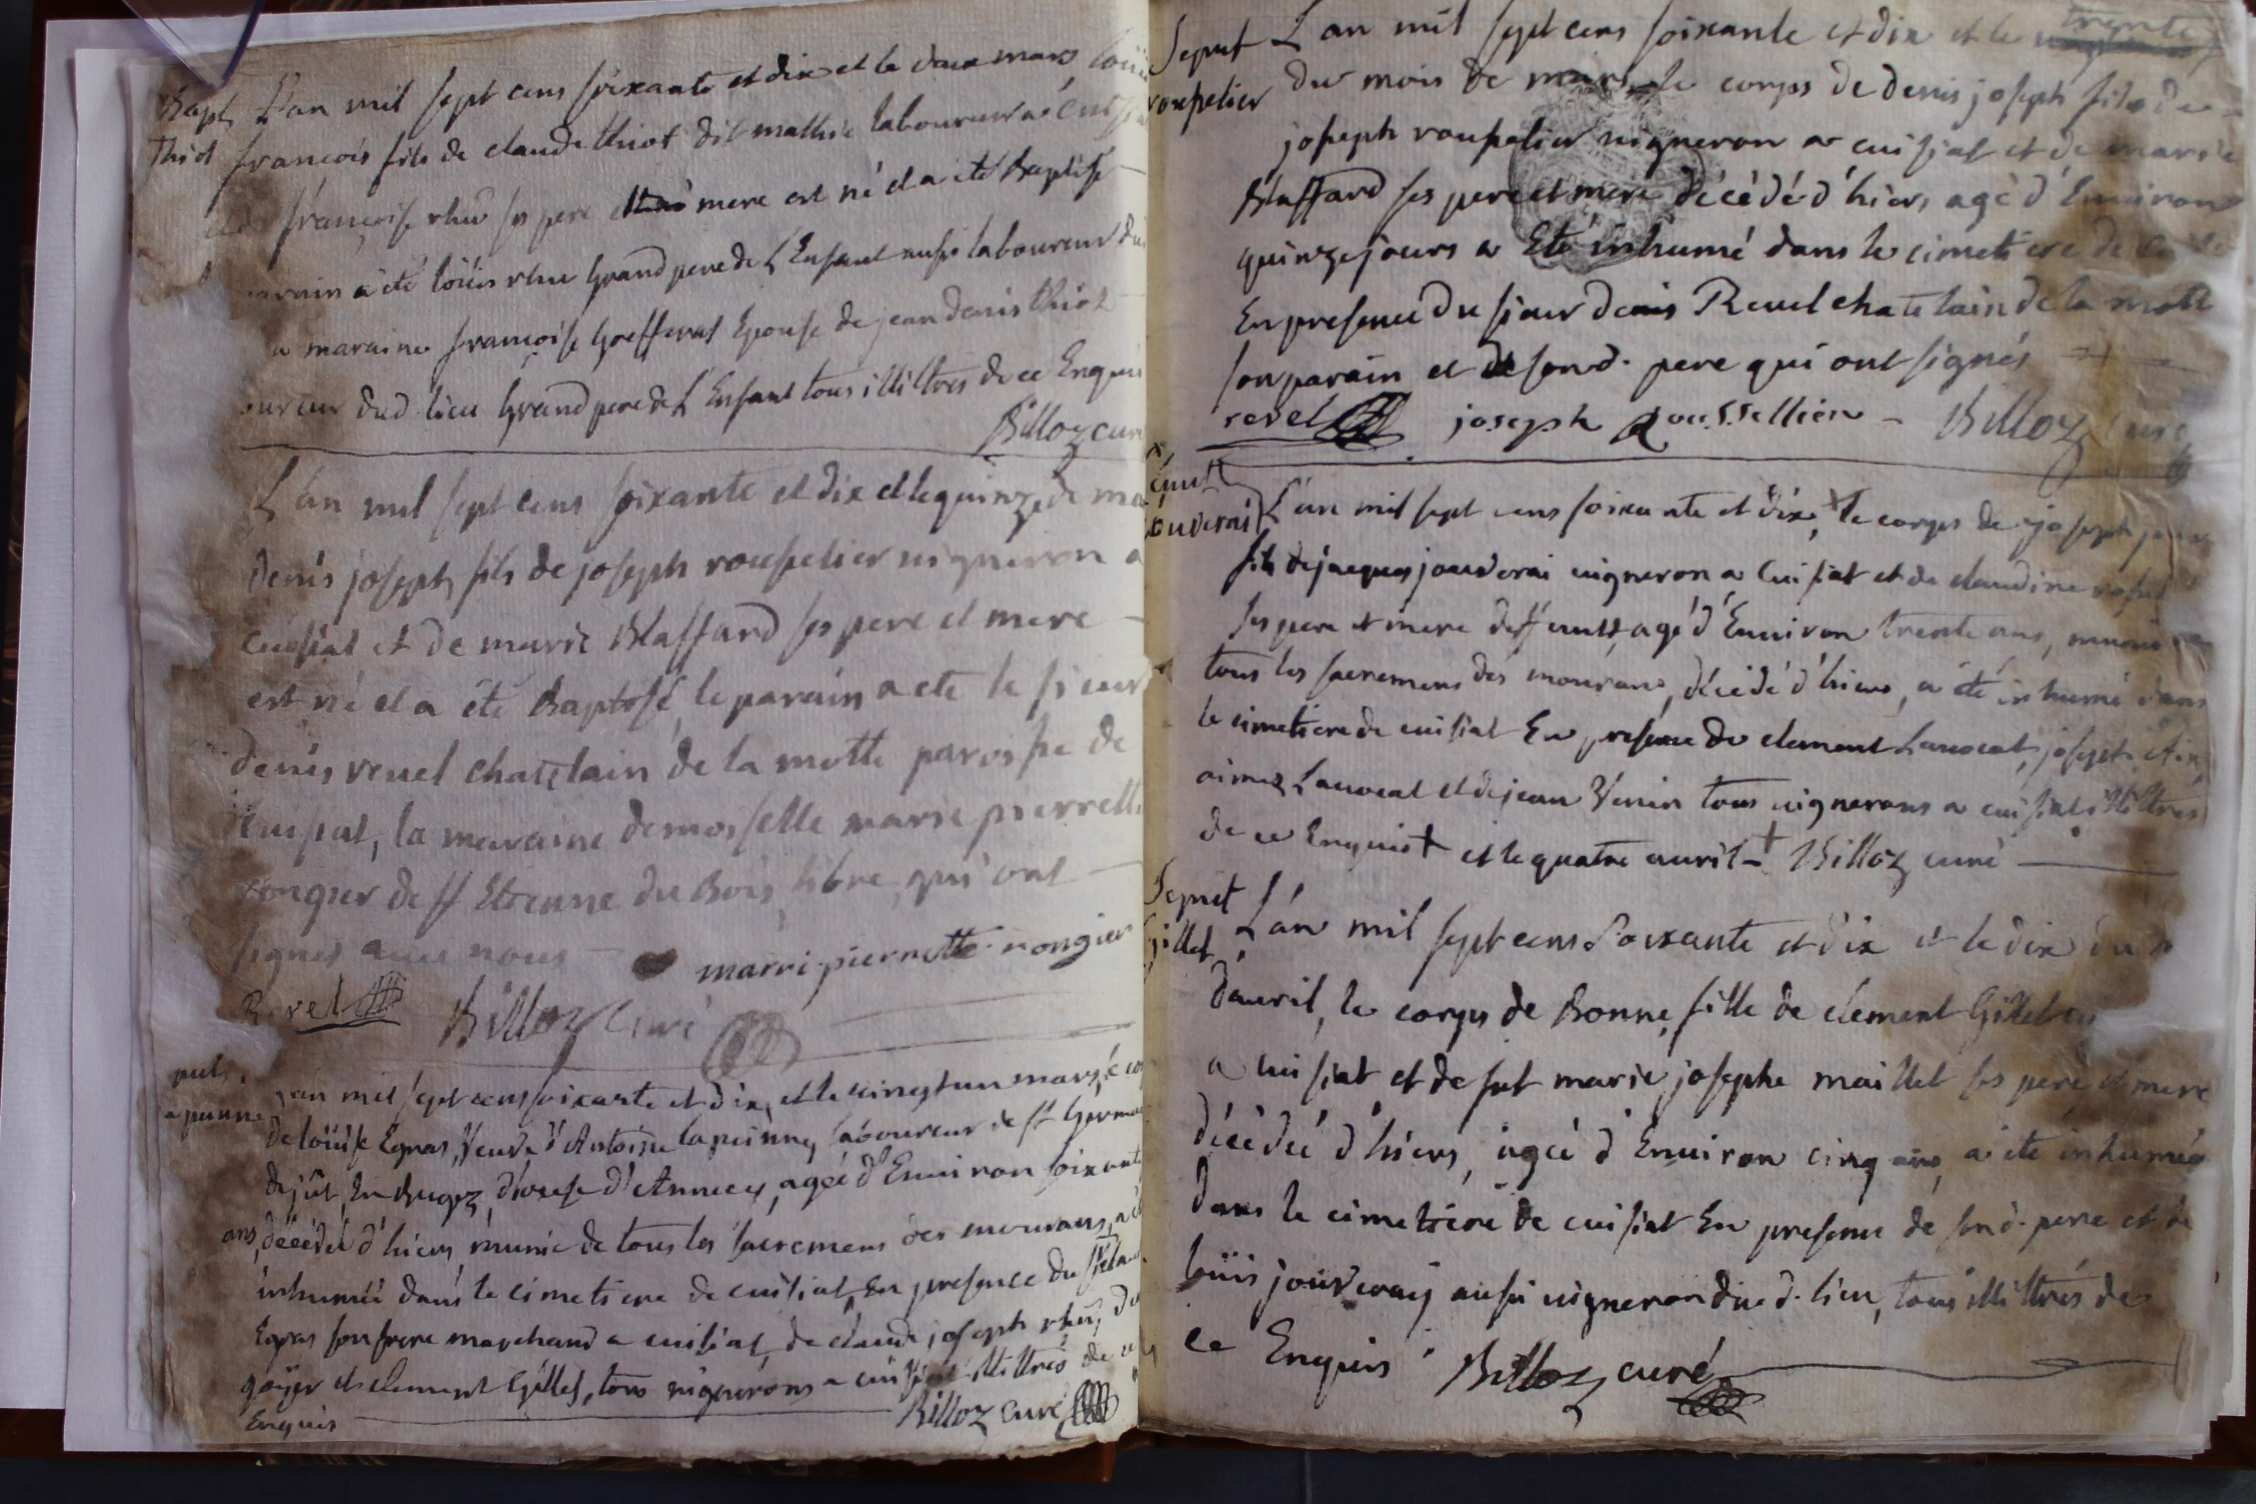 Bapt L'an mil sept cens soixante et dix et le deux mars loüi
Thiot françois fils de claude thiot dit mathie laboureur a
françoise rhu ses pere et mere est né et a ete Baptisé
parain a été loüis rhu grand pere de l'Enfant aussi laboureur du
la maraine françoise goefferat Epouse de jean denis thiot
dud. lieu grand pere de l'Enfant tous illittrés de ce Enquis
Billoz curé
L'an mil sept cens soixante et dix et le quinze de ma
denis joseph fils de joseph rousselier uigneron a
cuisiat et de marie Blaffard ses pere et mere
est né et a été Baptisé, le parain a ete le sieur
denis revel chatelain de la motte paroisse de
Cuisiat, la maraine demoiselle marie pierrette
rongier de st Etienne du Bois, libre, qui ont
signés avec nous marri pierrette rongier
Revel Billoz Curé
L'an mil sept cens soixante et dix, et le vingt un mars, le cor
apeinne de loüise Egras, Veuve d'Antoine lapeinne, laboureur de st germa
de joü, En Bugez, diocese d'Annecy, agée d'Enuiron soixante
ans, décédée d'hiers, munie de tous les sacremens des mourans, a é
inhumée dans le cimetiere de cuisiat, En presence du sr
Egras son frere marchand a cuisiat, de claude joseph rhu, de
goÿer et clement Gillet, tous uignerons a cuisiat illittrés de ce
Enquis Billoz curé
Sepult L'an mil sept cens soixante et dix et le trente
rouselier du mois de mars, le corps de denis joseph fils de
joseph rousselier uigneron a cuisiat et de marie
Blaffard ses pere et mere décédé d'hiers, agé d'Enuiron
quinze jours a Eté inhumé dans le cimetiere de
En presence du sieur denis Revel chatelain de la motte
son parain et de sond. pere qui ont signés
revel joseph Roussellier Billoz Curé
jouverai L'an mil sept cens soixante et dix, + le corps de joseph
fils de jacques jouverai uigneron a Cuisiat et de claudine
ses pere et mere deffunts, agé d'Enuiron trente ans, muni
tous les sacremens des mourans, décédé d'hiers, a été inhumé dans
le cimetiere de cuisiat En presence de clement Lauocat, joseph
aimez Lauocat et de jean Venin tous uignerons a cuisiat illittrés
de ce Enquis + et le quatre auril + Billoz curé
Sepult
gillet L'an mil sept cens Soixante et dix et le dix du
d'auril, le corps de Bonne, fille de clement Gillet
a Cuisiat et de fut marie josephe maillet ses pere et mere
décédée d'hiers, agée d'Enuiron cinq ans, a été inhumée
dans le cimetiére de cuisiat En presence de sond. pere et de
loüis jouveray aussi uigneron dud. lieu, tous illittrés de
ce Enquis Billoz curé